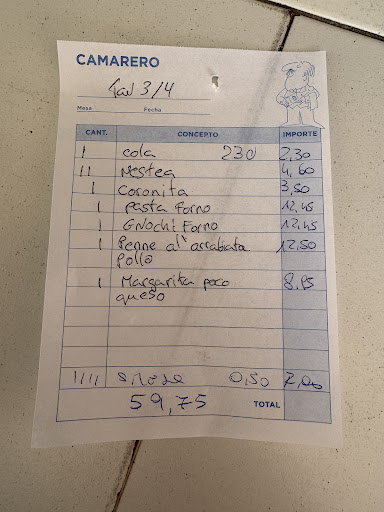 CAMARERO
3/4
Mesa Fecha
CANT. CONCEPTO IMPORTE
1 cola 230 2,30
11 Nestea 4,60
1 Coronita 3,50
1 Pasta Forno 12,45
1 GNochi Forno 12,45
1 Penne al'arrabiata 12,50
Pollo
1 Margarita poco 8,95
queso
1111 0,50 2,00
59,75 TOTAL